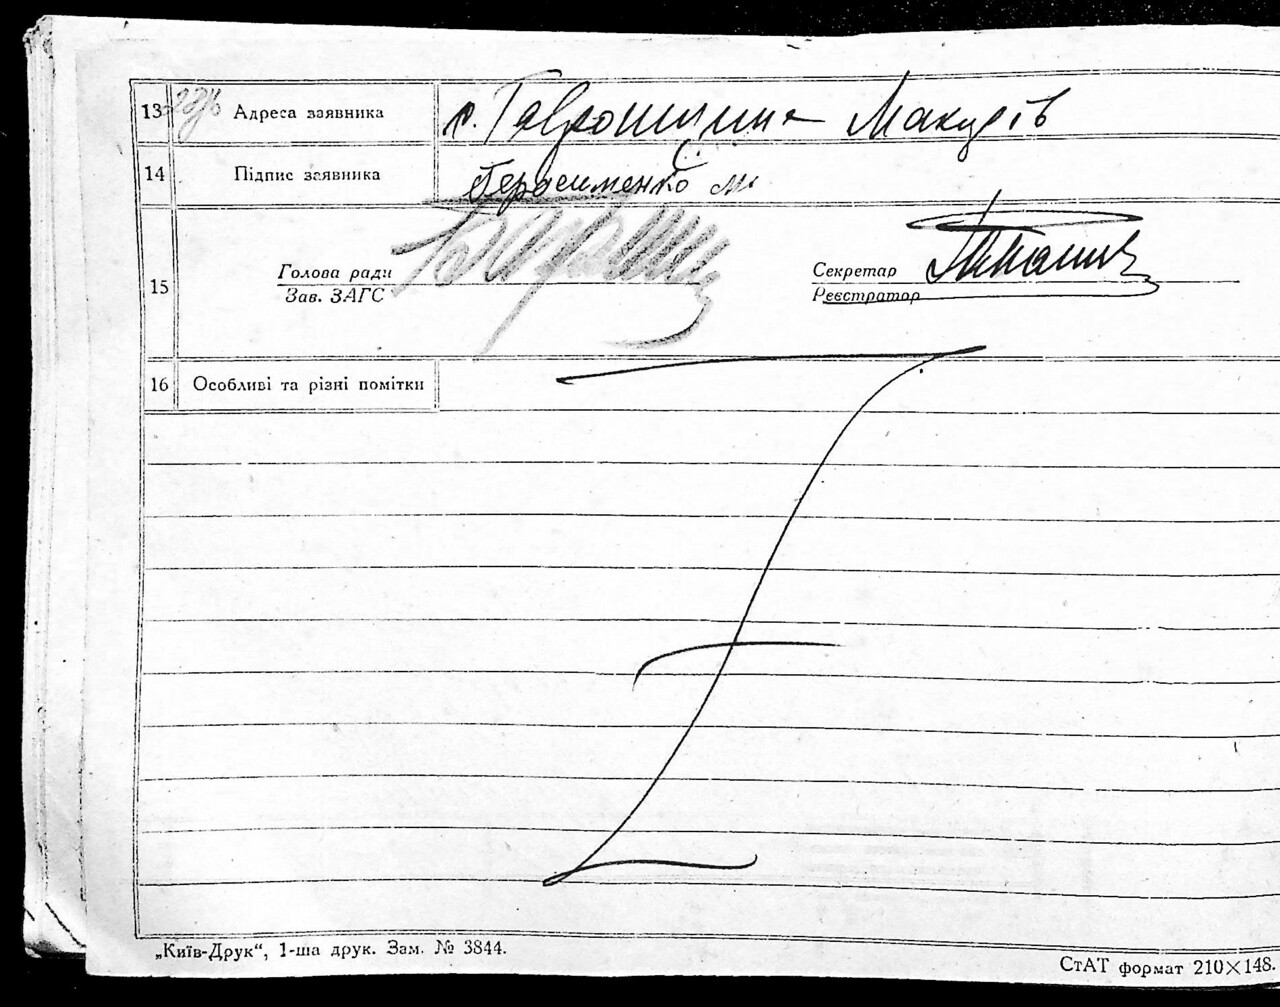 13 Адреса заявника с. Гавронщина Макарів
14 Підпис заявника Герасименко
15 Голова ради Секретар
Зав. ЗАГС Реєстратор
16 Особливі та різні помітки
„Київ-Друк“, 1-ша друк. Зам. № 3844.
СтАТ формат 210×148.